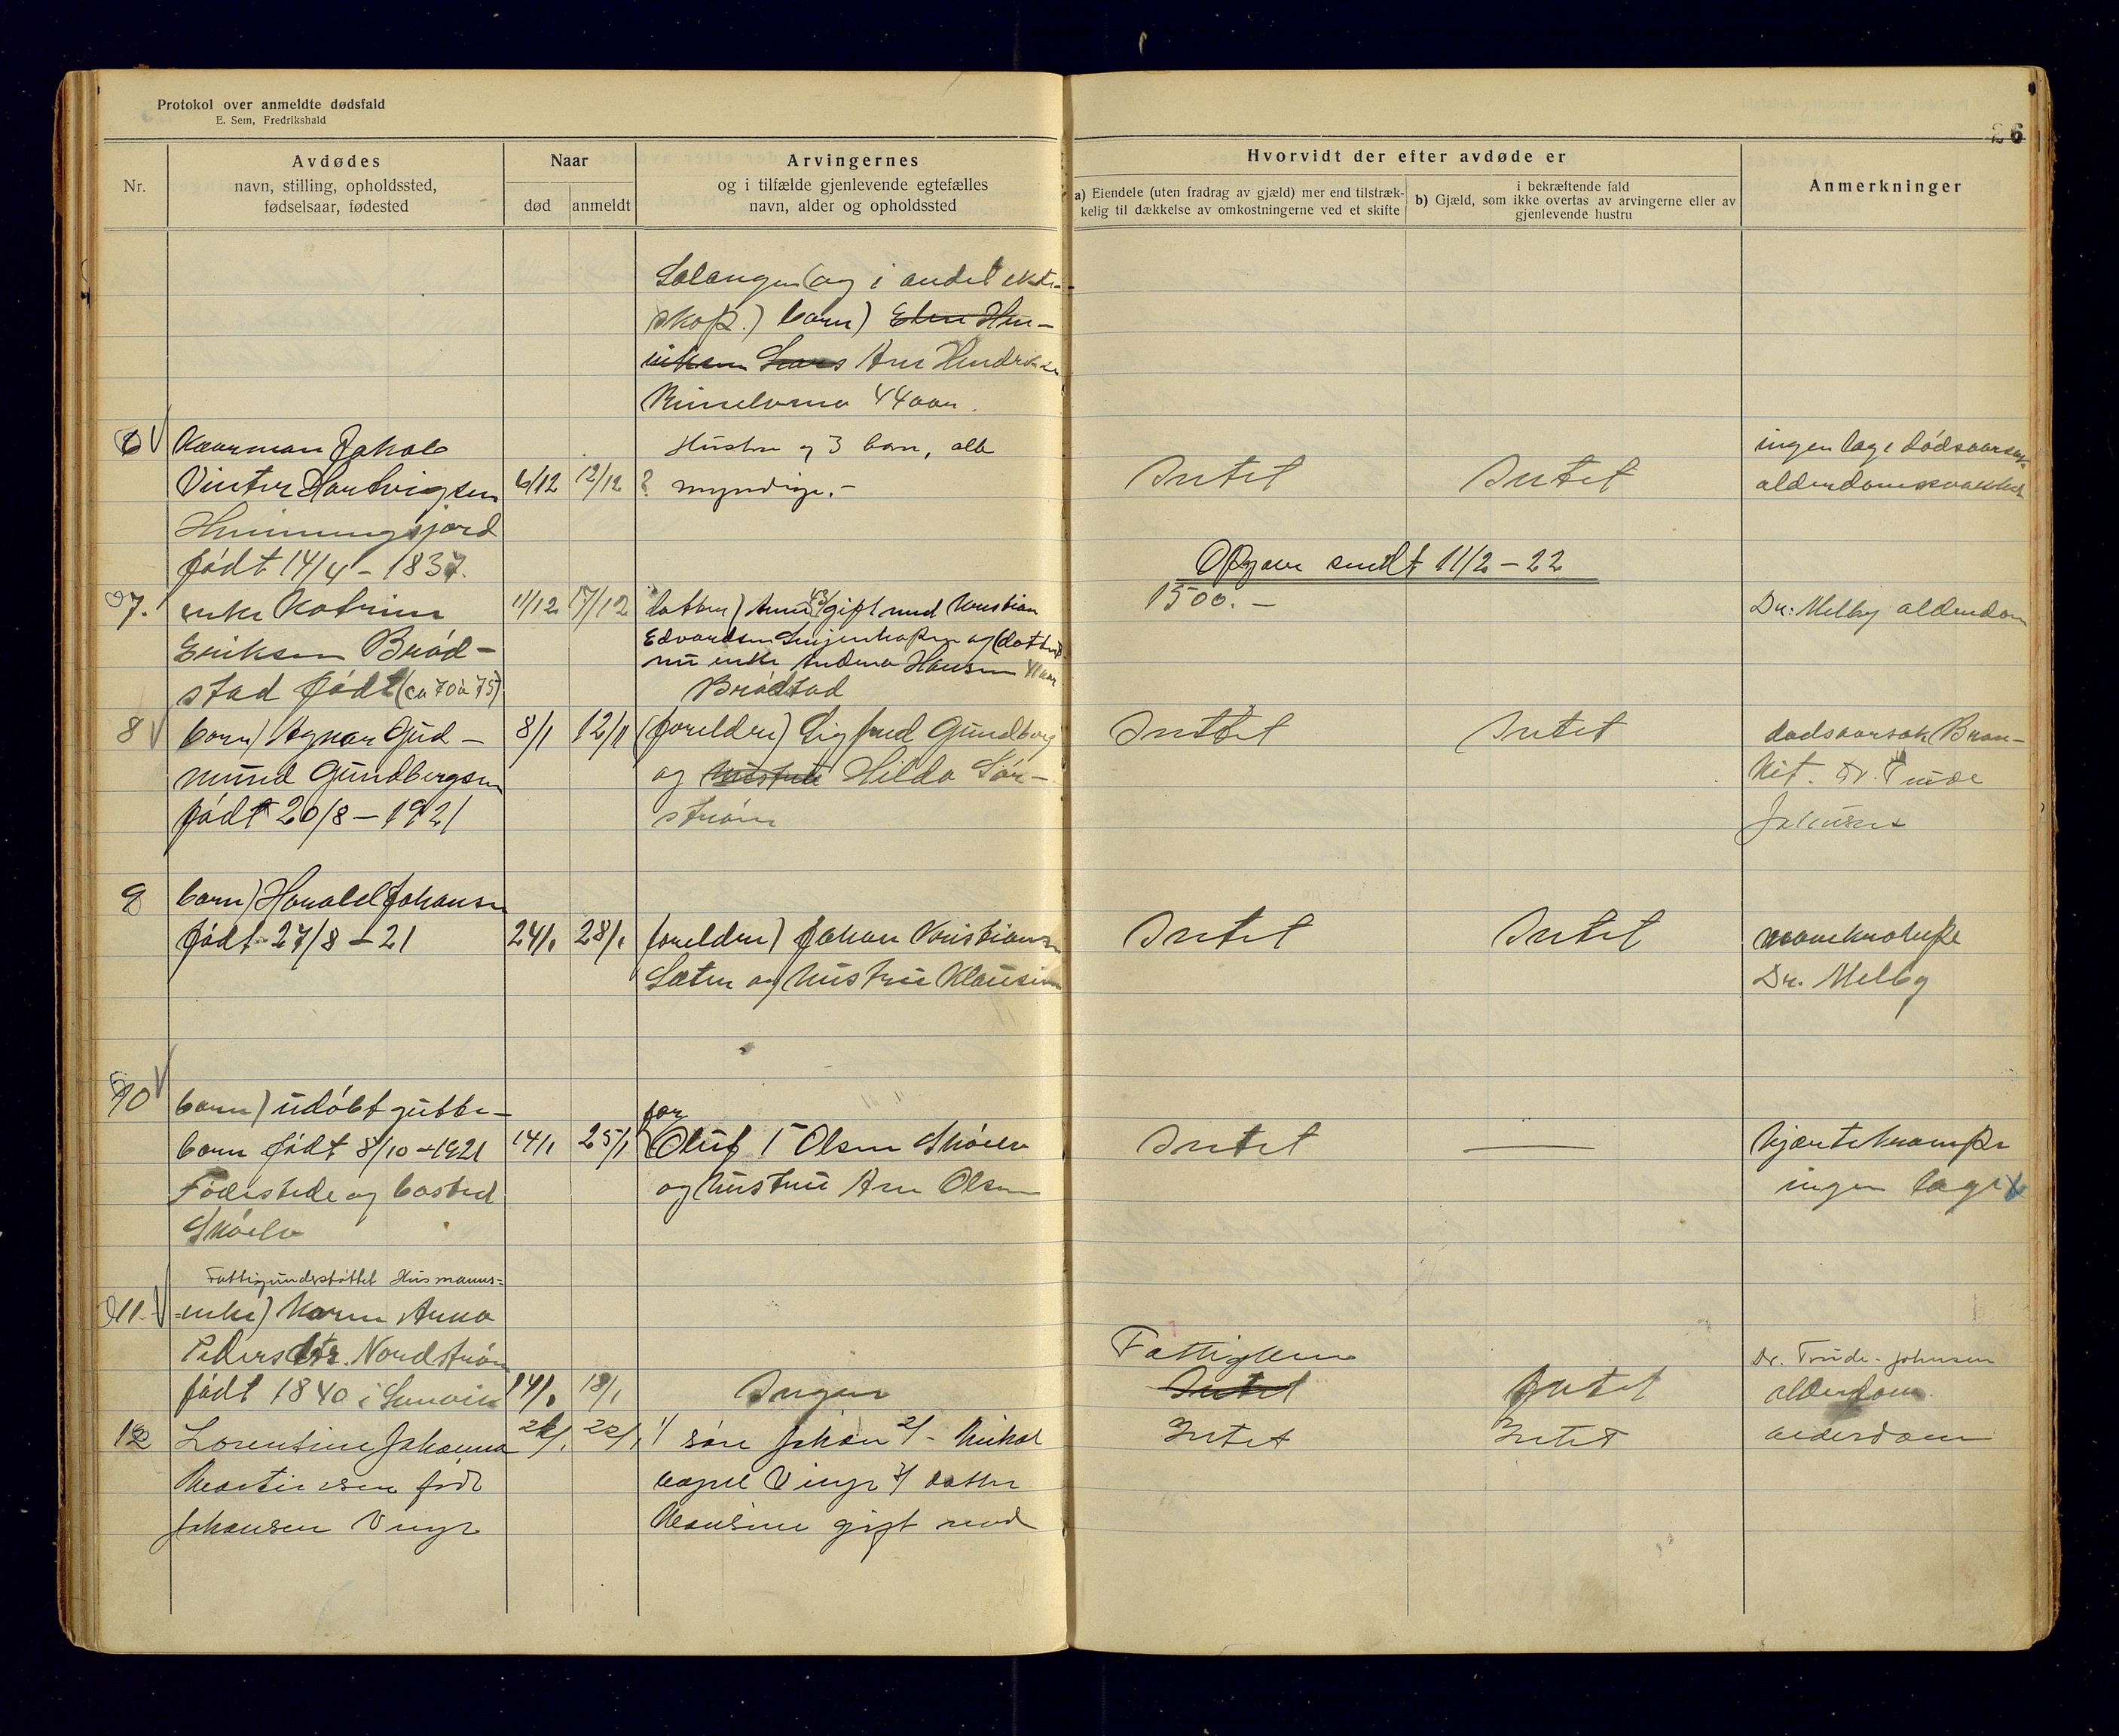 Protokol over anmeldte dødsfald
E. Sem, Fredrikshald
26
Nr.
Avdødes
navn, stilling, opholdssted,
fødselsaar, fødested
Naar
død
anmeldt
Arvingernes
og i tilfælde gjenlevende egtefælles
navn, alder og opholdssted
Hvorvidt der efter avdøde er
a) Eiendele (uten fradrag av gjæld) mer end tilstræk-
kelig til dækkelse av omkostningerne ved et skifte
i bekræftende fald
b) Gjæld, som ikke overtas av arvingerne eller av
gjenlevende hustru
Anmerkninger
Salangen (og i andet ekte-
skap.) barn)
Ane Hendriksen
44 aar.
6 Kaarman Jakob
Vinter Hartvigsen
Hemmingsjord
født 14/4 - 1837.
6/12 12/12
Hustru og 3 barn, alle
myndige. -
Intet Intet
ingen læge dødsaarsak
alderdomssvakhet
Opgave sendt 11/2 - 22
7. enke Katrine
Eriksen Brød-
stad født (ca 70 à 75)
11/12 17/12
datter) Anne 43 gift med Kristian
Edvardsen og (datter
nu enke Andrea Hansen 41 aar
Brødstad
1500. -
Dr: Melby alderdom
8 barn) Agnar Gud-
mund Gundbergsen
født 20/8 - 1921
8/1 12/1
(foreldre) Sigfred Gundberg
og hustru Hilda Sør-
strøm
Intet Intet
dødsaarsak Bron-
kit. Dr. Trude
Johnsen
9 barn) Harald Johansen
født 27/8 - 21
24/1 28/1
foreldre) Johan Kristiansen
Sæter og hustru Klausine
Intet Intet
mavekatarr
Dr. Melby
10 barn) udøbt gutte-
barn født 8/10 - 1921
Fødested og bosted
Skøelv
14/1 25/1
far
Oluf T Olsen Skøelv
og hustru Ane Olsen
Intet —
hjertekrampe
ingen læge
Fattigunderstøttet Husmanns-
11. -enke) Karen Anna
Pedersdtr. Nordstrøm
født 1840 i
14/1 18/1
Ingen
Fattiglem
Intet Intet
Dr. Trude-Johnsen
alderdom.
12 Lorentine Johanna
Martinsen født
Johansen Vinje
21/1 22/1
1/ søn Johan 2/ - Mikal
begge Vinje 3/ datter
Hansine gift med
Intet Intet
alderdom